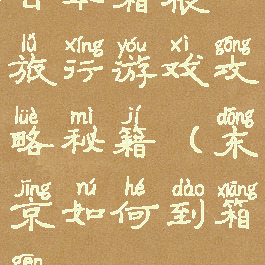 lǚ xíng yóu xì gōng
旅行游戏攻
lüè mì jí dōng
略秘籍（东
jīng rú hé dào xiāng
京如何到箱
gēn